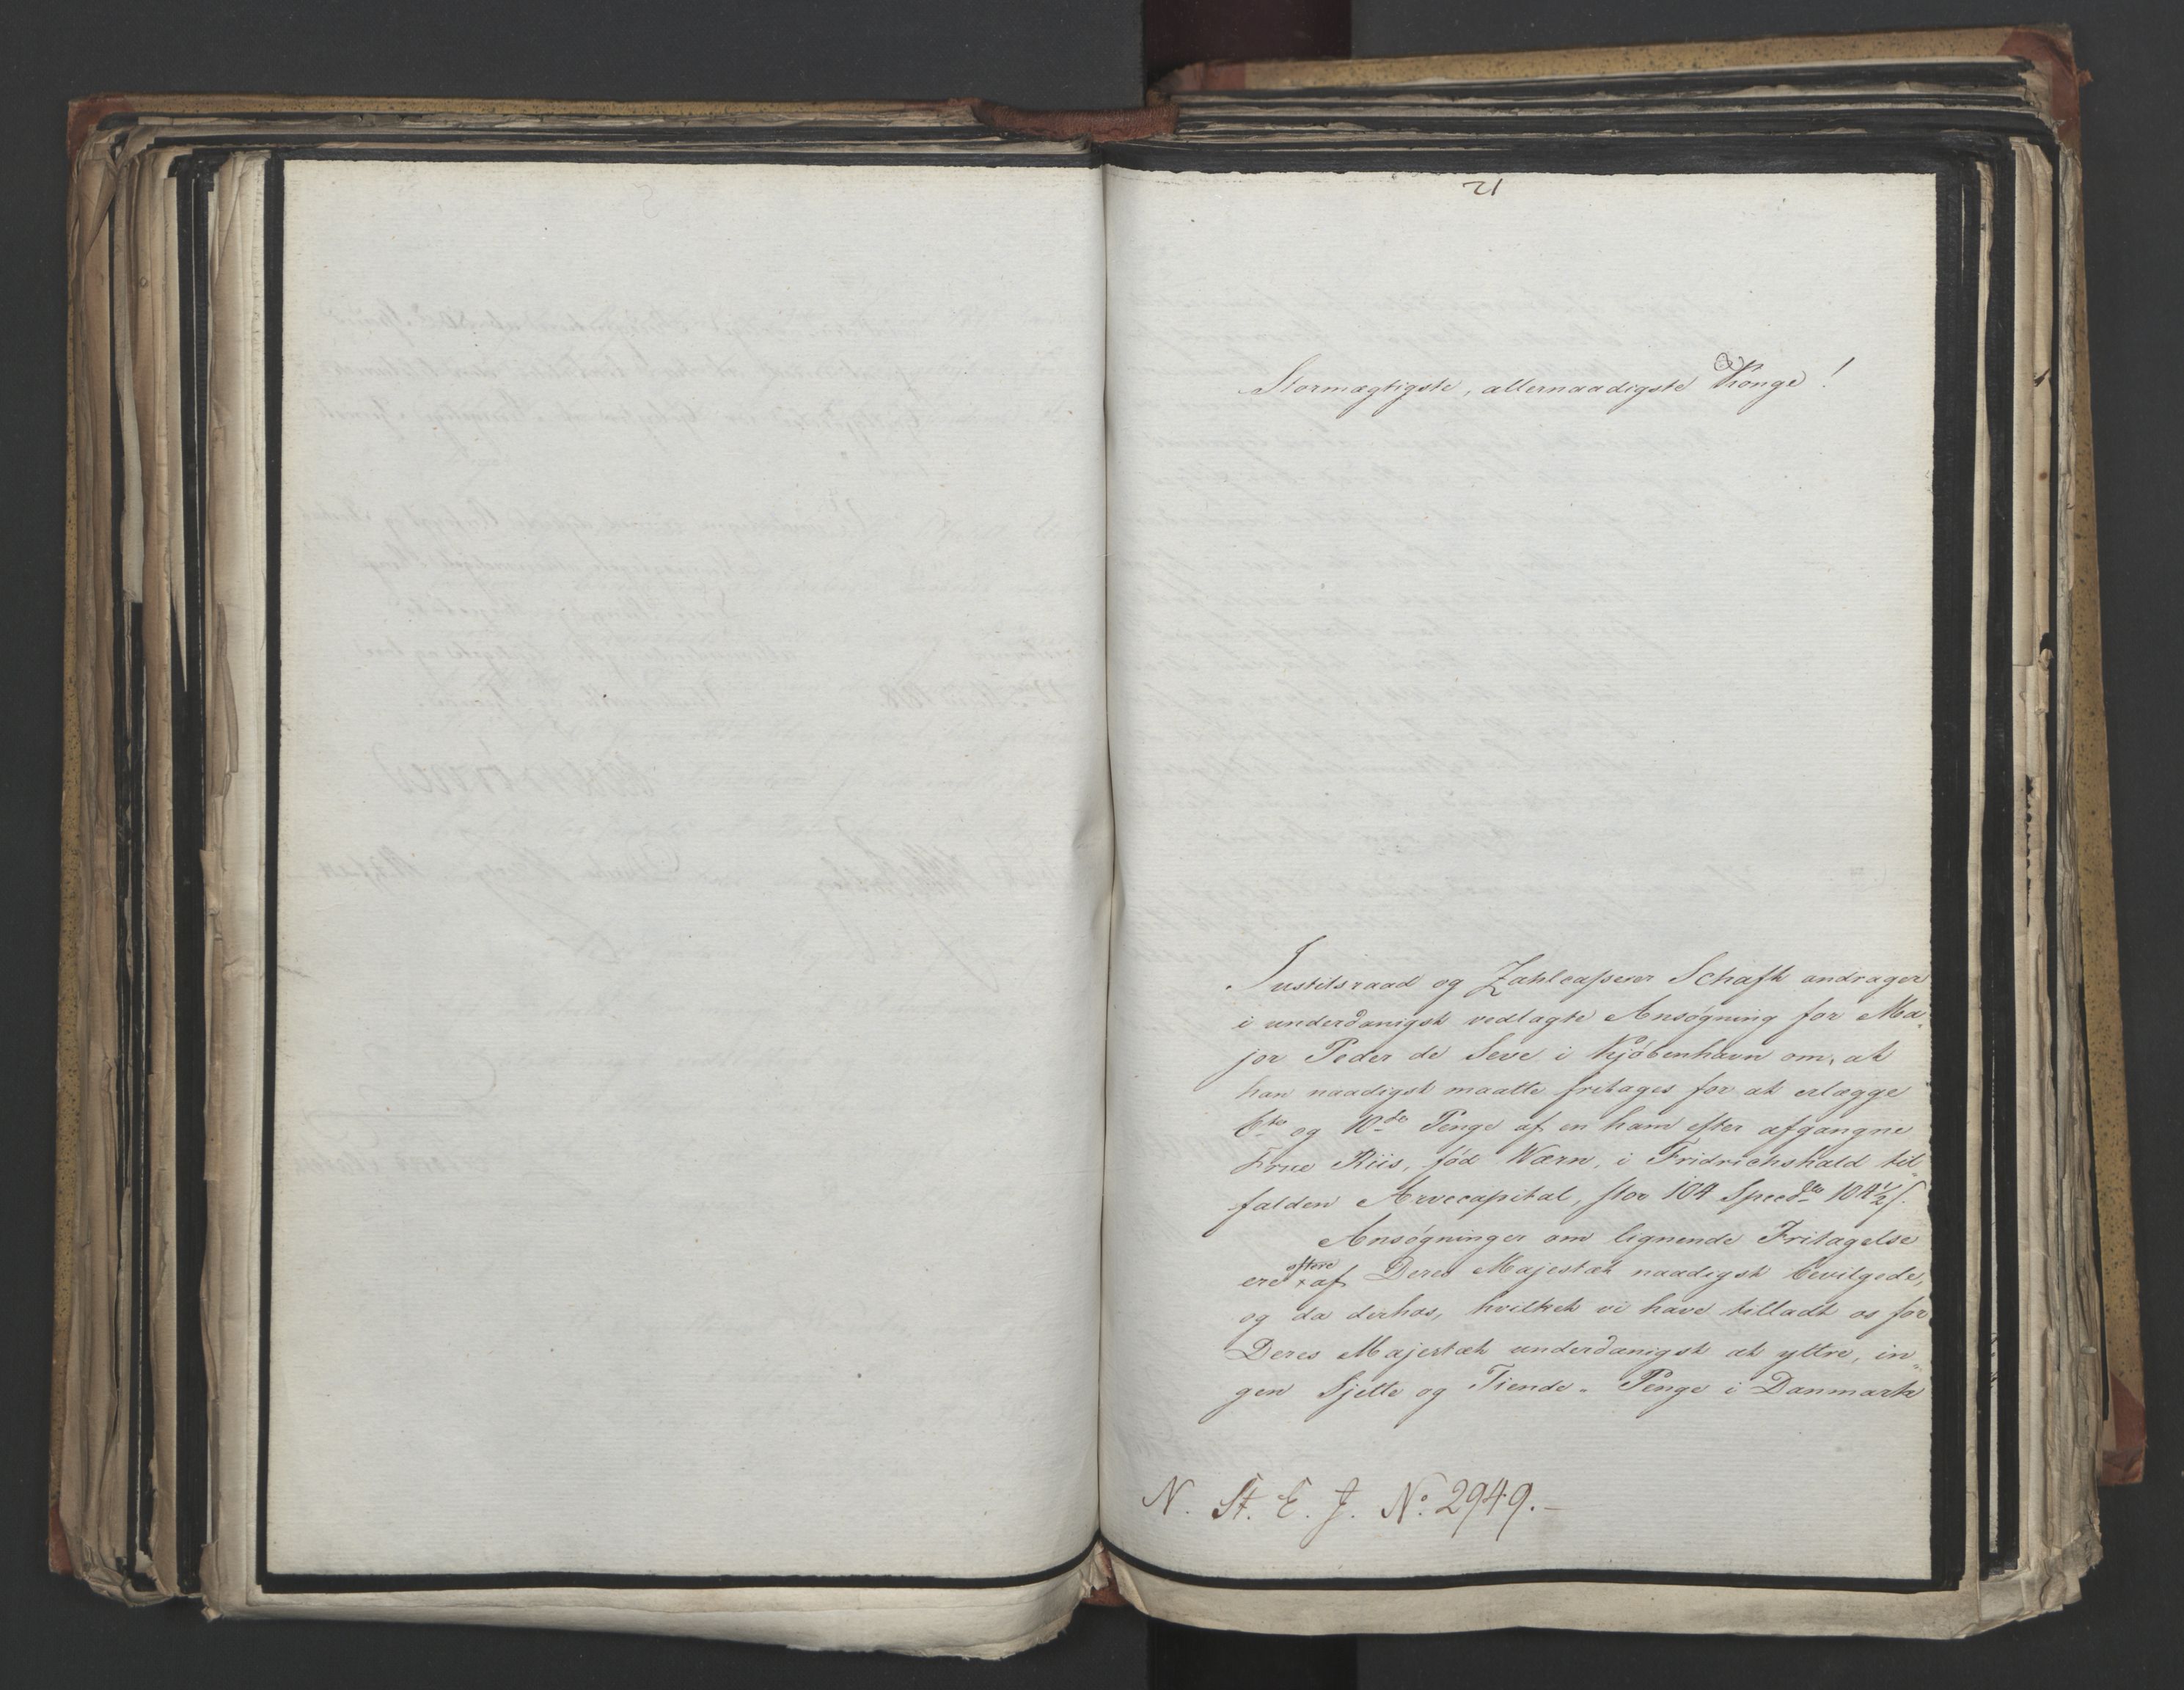 21
Stormægtigste, allernaadigste Konge!
Justitsraad og Zahlcasserer Schaft andrager
i underdanigst vedlagte Ansøgning for Ma„
jor Peder de Seve i Kjöbenhavn om, at
han naadigst maatte fritages for at erlægge
6te og 10de Penge af en ham efter afgangne
Frue Riis, fød Wærn, i Fridrichshald til„
falden Arvecapital, stor 104 Specd. 104½ s.
Ansøgninger om lignende Fritagelse
ere oftere af Deres Majestæt naadigst bevilgede,
og da derhos, hvilket vi have tilladt os for
Deres Majestæt underdanigst at yttre, in„
gen Sjette og Tiende-Penge i Danmark
N. St. E. J. No. 2949.-